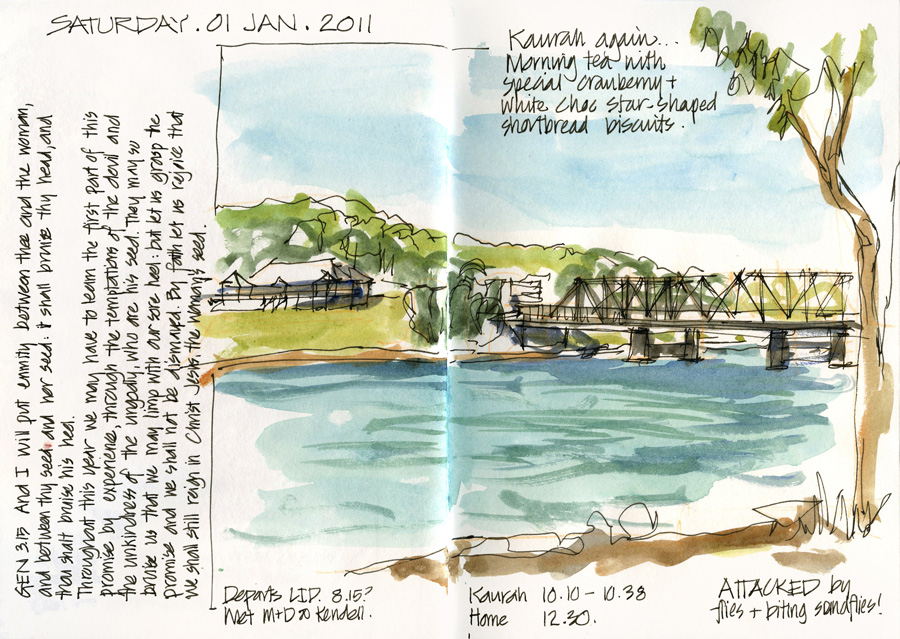 SATURDAY. 01 JAN. 2011
GEN 3.15 And I will put enmity between thee and the woman,
and between thy seed and her seed: it shall bruise thy head, and
thou shalt bruise his heel.
Throughout this year we may have to learn the first part of this
promise by experience, through the temptations of the devil and
the unkindness of the ungodly, who are his seed. They may so
bruise us that we may limp with our sore heel: but let us grasp the
promise and we shall not be dismayed. By faith let us rejoice that
we shall still reign in Christ Jesus, the woman's seed.
Kaurah again...
Morning tea with
special cranberry +
white choc star-shaped
shortbread biscuits.
Departs LID. 8.15?
Met M+D @ Kendell.
Kaurah 10.10 - 10.38
Home 12.30.
ATTACKED by
flies + biting sandflies!